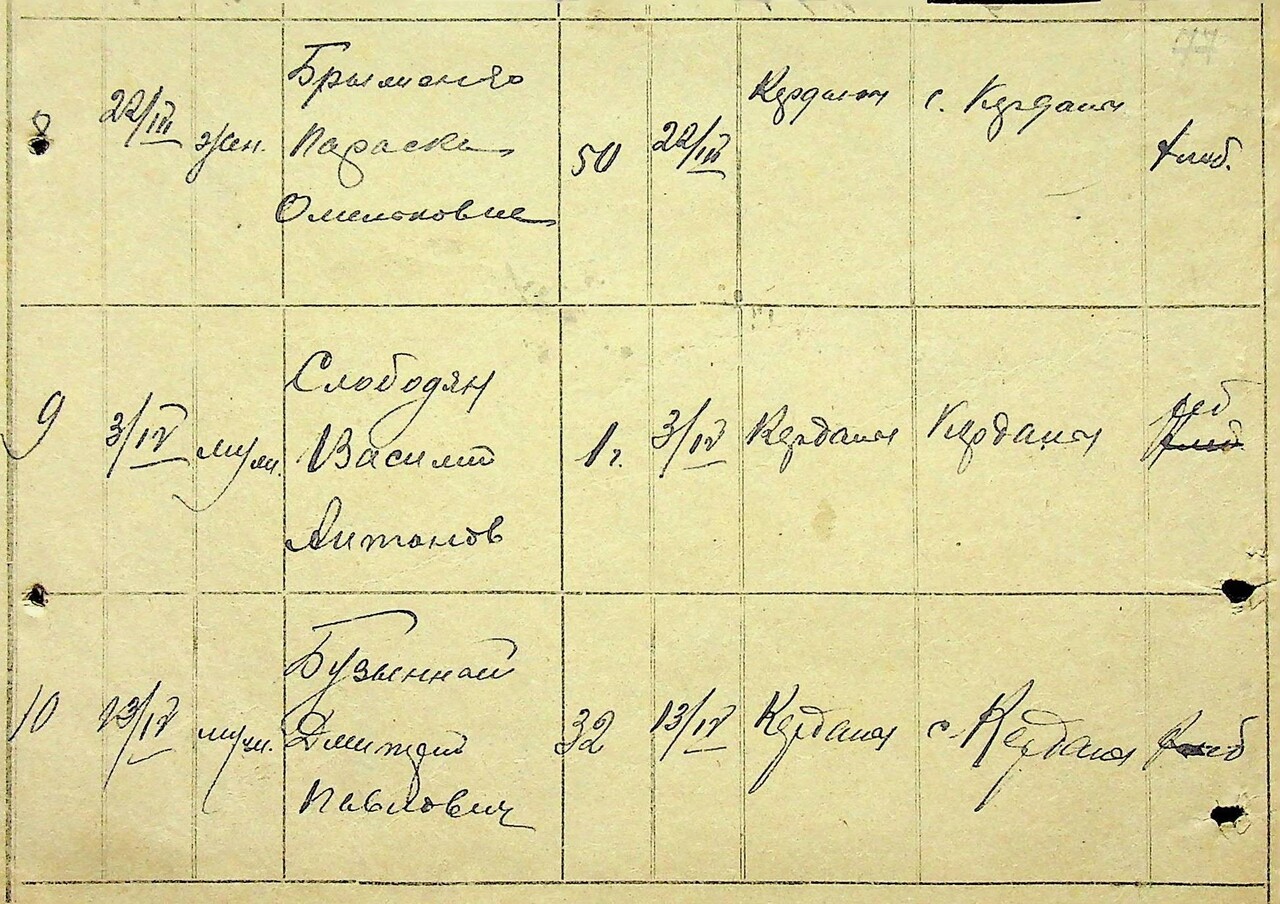 77
8 22/III жен. Брыманяо Параска Омельковне 50 22/III Кердани с. Кердани хлеб.
9 3/IV муж. Слободян Василий Антонов 1 г. 3/IV Кердани Кердани реб
10 13/IV муж. Бузынной Дмитрий Павлович 32 13/IV Кердани с. Кердани хлеб